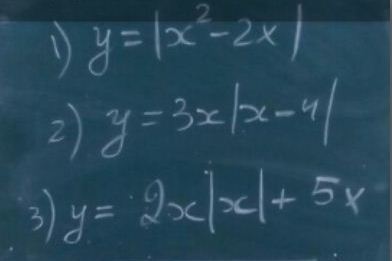 1) y = |x² - 2x|
2) y = 3x|x - 4|
3) y = 2x|x| + 5x